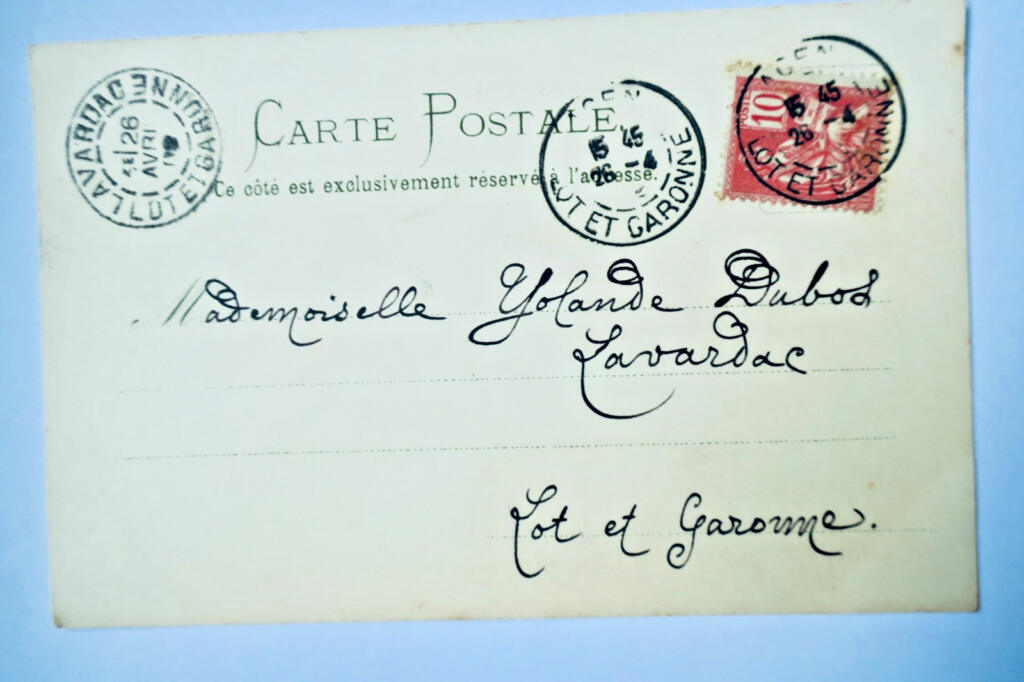 CARTE POSTALE
Ce côté est exclusivement réservé à l'adresse.
LAVARDAC
LOT ET GARONNE
1E 26
AVRIL
AGEN
15 45
26 -4
LOT ET GARONNE
POSTES
10
AGEN
15 45
26 -4
LOT ET GARONNE
Mademoiselle Yolande Dubos
Lavardac
Lot et Garonne.